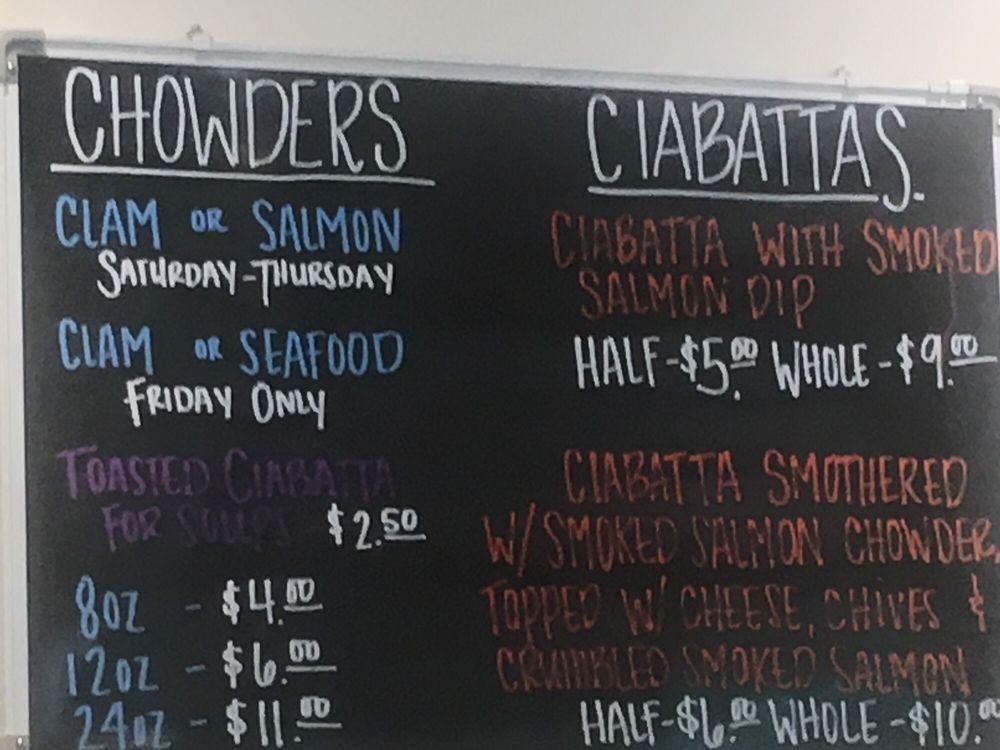 CHOWDERS
CLAM OR SALMON
SATURDAY-THURSDAY
CLAM OR SEAFOOD
FRIDAY ONLY
TOASTED CIABATTA
FOR SOUPS $2.50
8OZ - $4.00
12OZ - $6.00
24OZ - $11.00
CIABATTAS
CIABATTA WITH SMOKED
SALMON DIP
HALF-$5.00 WHOLE-$9.00
CIABATTA SMOTHERED
W/SMOKED SALMON CHOWDER
TOPPED W/ CHEESE, CHIVES &
CRUMBLED SMOKED SALMON
HALF-$6.00 WHOLE-$10.00